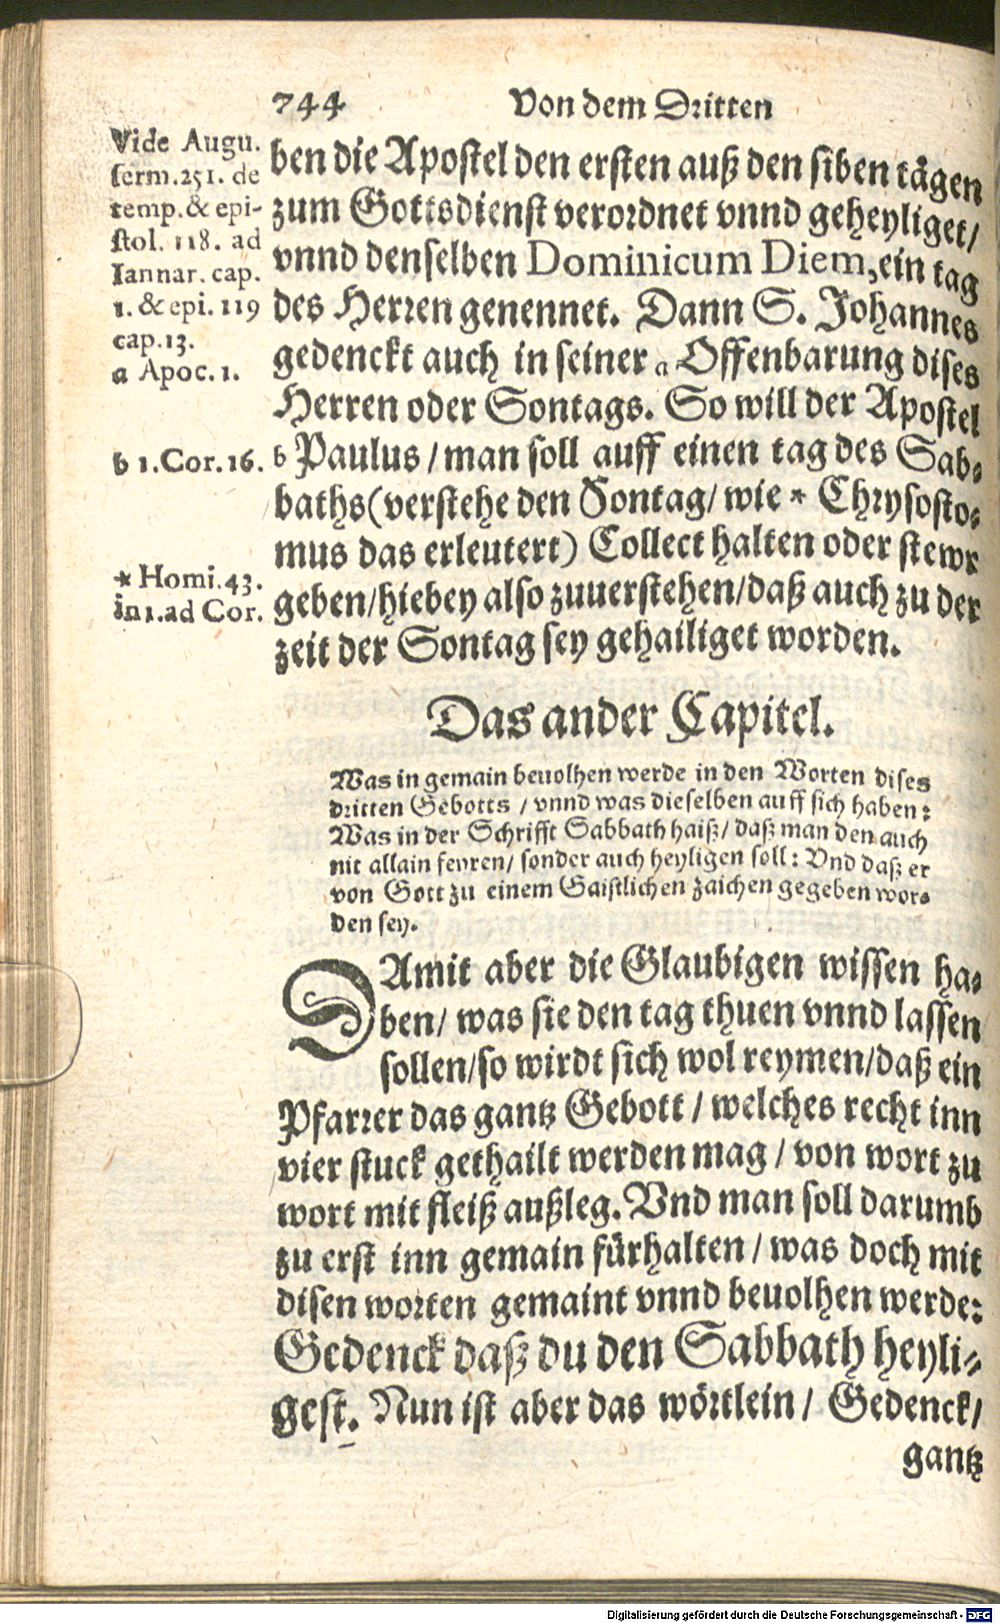 744 Von dem Dritten
Vide Augu.
serm.251. de
temp. & epi-
stol. 118. ad
Iannar. cap.
1. & epi. 119
cap.13.
a Apoc. 1.
b 1.Cor.16.
* Homi.43.
in 1.ad Cor.
ben die Apostel den ersten auß den siben tägen
zum Gottsdienst verordnet vnnd geheyliget/
vnnd denselben Dominicum Diem, ein tag
des Herren genennet. Dann S. Johannes
gedenckt auch in seiner a Offenbarung dises
Herren oder Sontags. So will der Apostel
b Paulus / man soll auff einen tag des Sab-
baths (verstehe den Sontag/ wie * Chrysosto-
mus das erleutert) Collect halten oder stewr
geben/hiebey also zuuerstehen/daß auch zu der
zeit der Sontag sey gehailiget worden.
Das ander Capitel.
Was in gemain beuolhen werde in den Worten dises
dritten Gebotts / vnnd was dieselben auff sich haben:
Was in der Schrifft Sabbath haiß/ daß man den auch
nit allain feyren/ sonder auch heyligen soll: Vnd daß er
von Gott zu einem Gaistlichen zaichen gegeben wor-
den sey.
DAmit aber die Glaubigen wissen ha-
ben/ was sie den tag thuen vnnd lassen
sollen/so wirdt sich wol reymen/daß ein
Pfarrer das gantz Gebott / welches recht inn
vier stuck gethailt werden mag / von wort zu
wort mit fleiß außleg. Vnd man soll darumb
zu erst inn gemain fürhalten / was doch mit
disen worten gemaint vnnd beuolhen werde:
Gedenck daß du den Sabbath heyli-
gest. Nun ist aber das wörtlein / Gedenck/
gantz
Digitalisierung gefördert durch die Deutsche Forschungsgemeinschaft - DFG